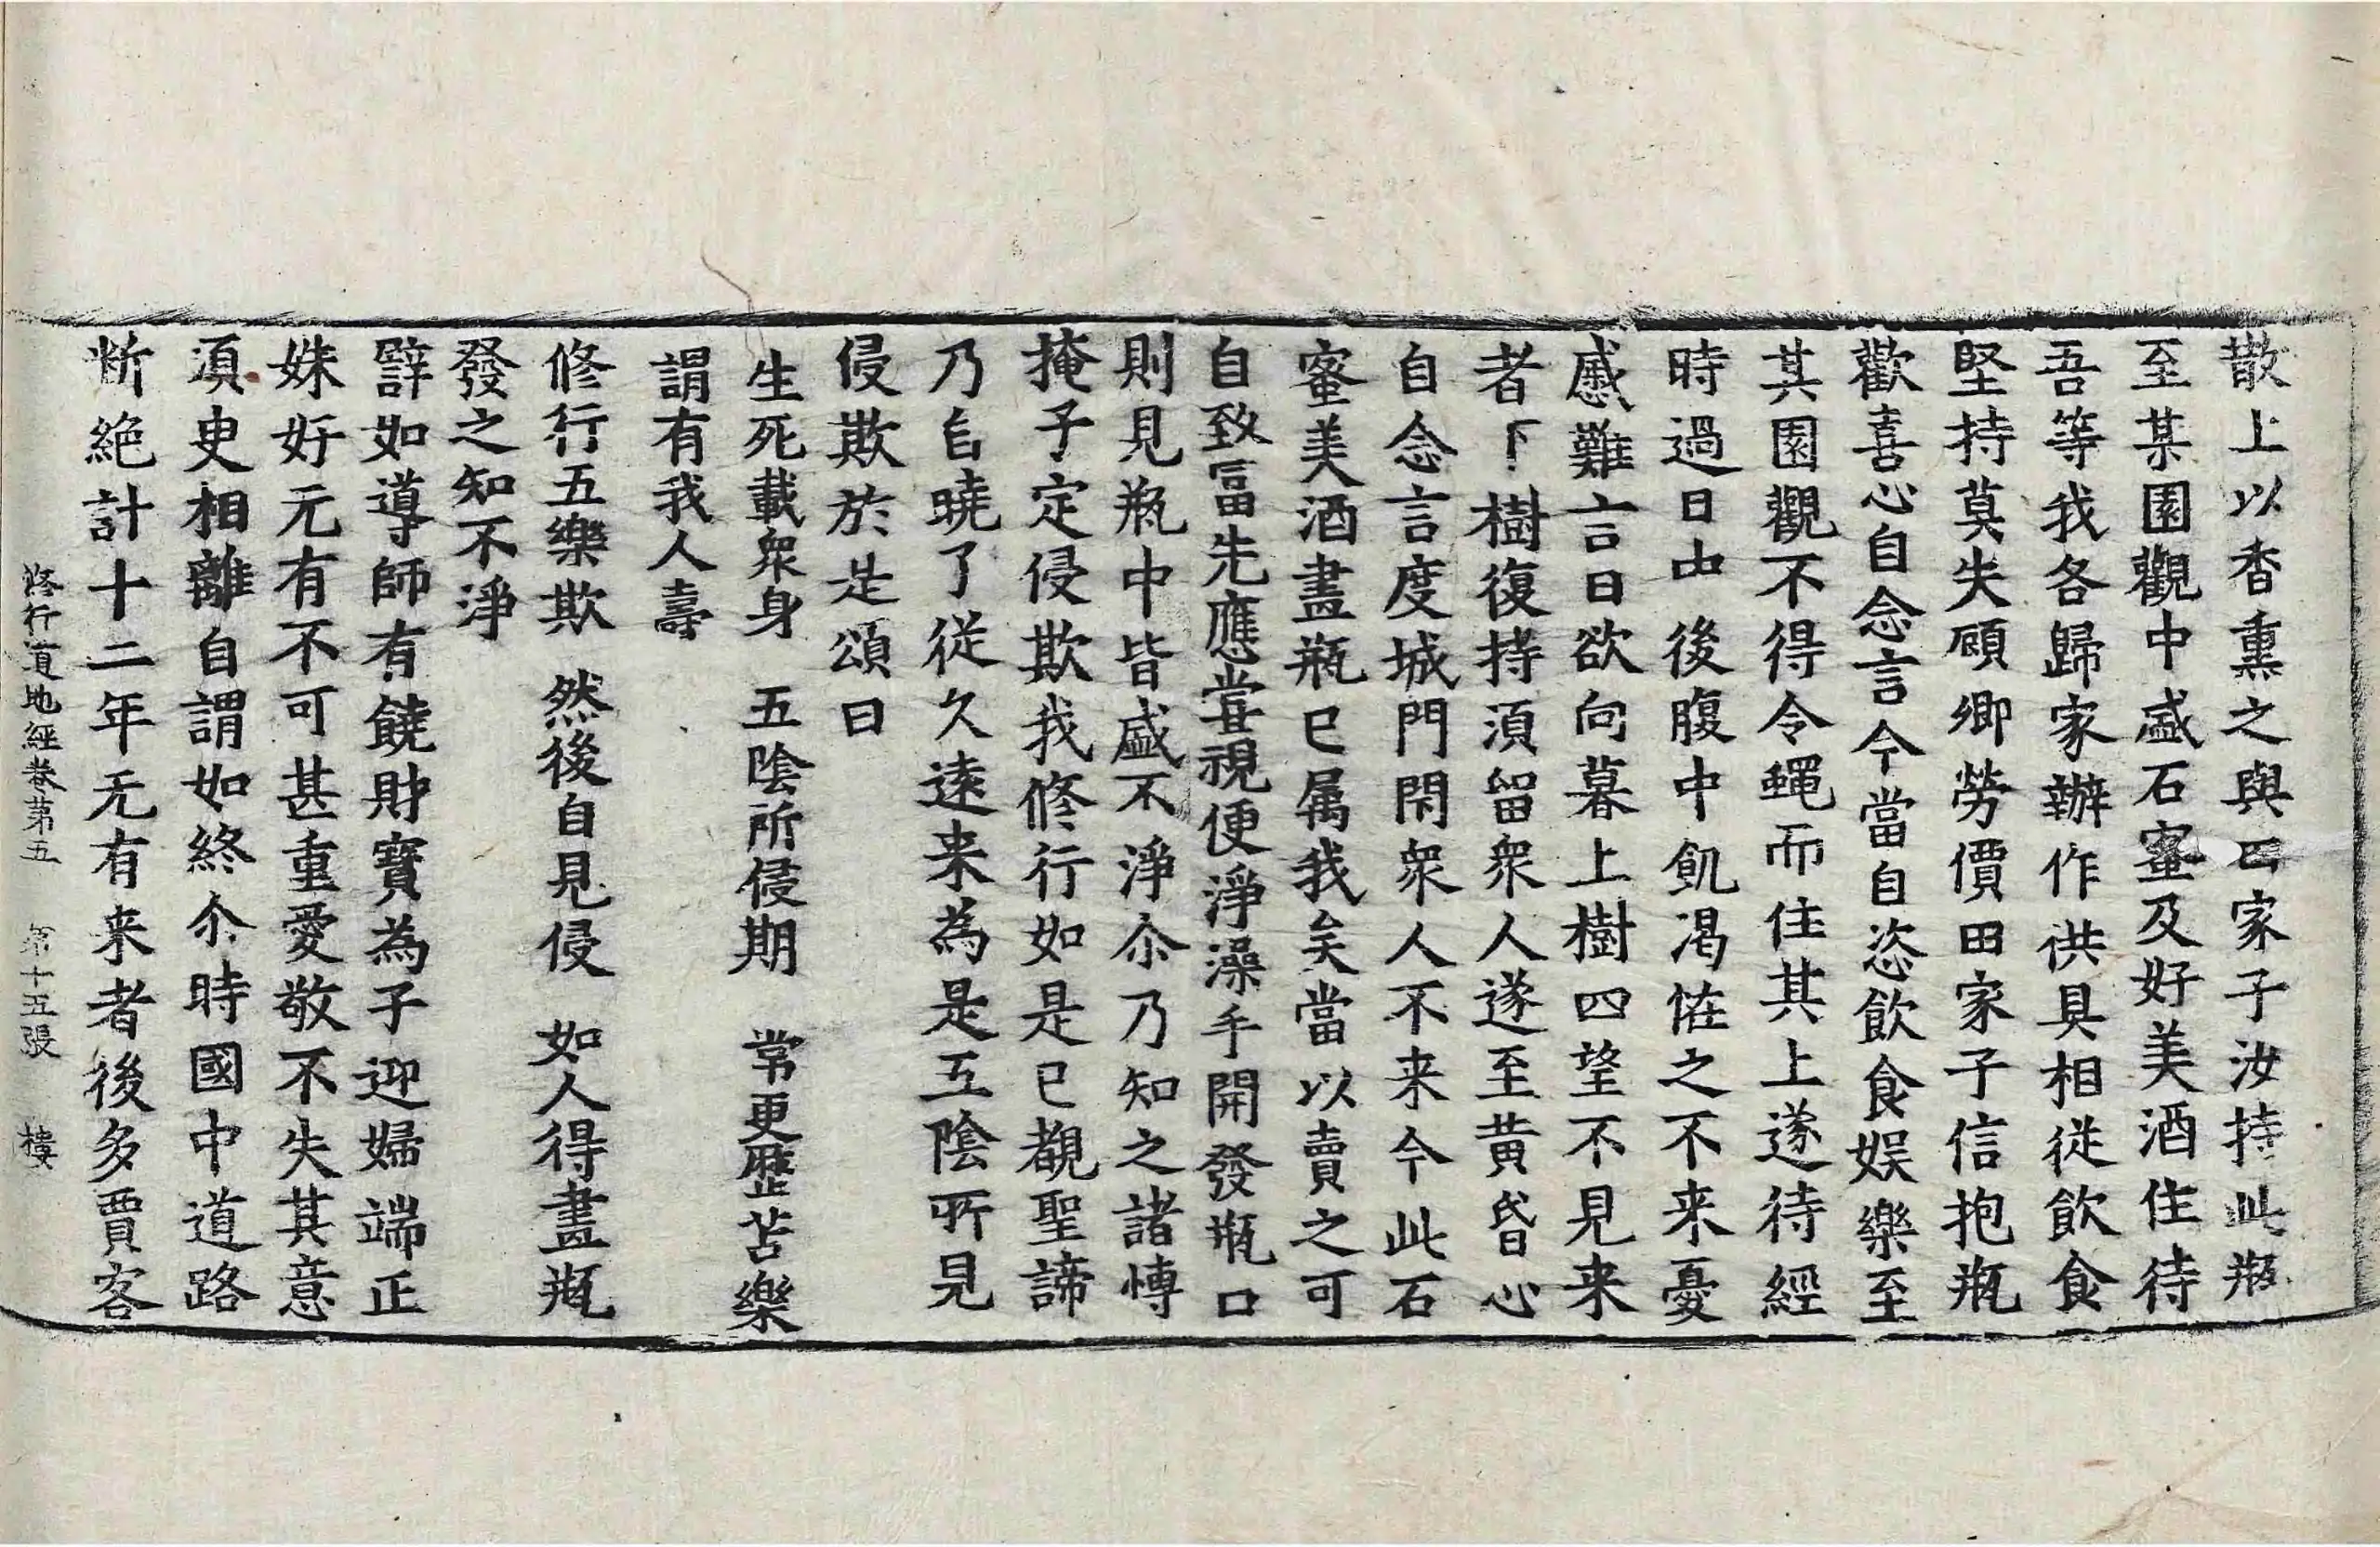 散上以香熏之與田家子汝持此瓶
至某園觀中盛石蜜及好美酒住待
吾等我各歸家辦作供具相從飲食
堅持莫失顧卿勞價田家子信抱瓶
歡喜心自念言今當自恣飲食娛樂至
其園觀不得令蠅而住其上遂待經
時過日中後腹中飢渴恠之不来憂
慼難言日欲向暮上樹四望不見来
者下樹復持湏留衆人遂至黄昏心
自念言度城門閇衆人不来今此石
蜜美酒畫瓶已属我矣當以賣之可
自致冨先應甞視便淨澡手開發瓶口
則見瓶中皆盛不淨尒乃知之諸愽
掩子定侵欺我修行如是已覩聖諦
乃自曉了從久遠来為是五陰所見
侵欺於是頌曰
生死載衆身　五陰所侵期　常更歷苦樂
謂有我人壽
修行五樂欺　然後自見侵　如人得畫瓶
發之知不淨
譬如導師有饒財寶為子迎婦端正
姝好元有不可甚重愛敬不失其意
湏臾相離自謂如終尒時國中道路
断絶計十二年无有来者後多賈客
修行道地經卷第五　第十五張　樓